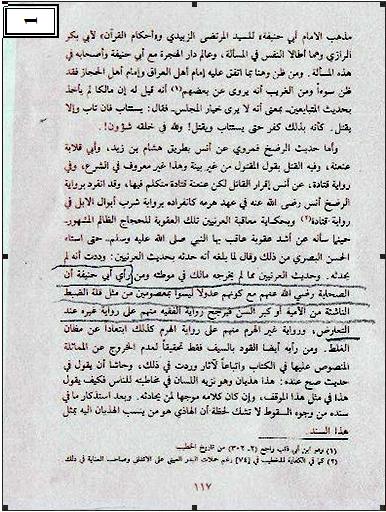 1
مذهب الامام أبي حنيفة» للسيد المرتضى الزبيدي و«أحكام القرآن» لأبي بكر
الرازي وهما أطالا النفس في المسألة، وعالم دار الهجرة مع أبي حنيفة وأصحابه في
هذه المسألة. ومن ظن وهنا بما اتفق عليه إمام أهل العراق وإمام أهل الحجاز فقد
ظن سوءاً ومن الغريب أنه يروى عن بعضهم(١) أنه قيل له إن مالكا لم يأخذ
بحديث المتبايعين ـ بمعنى أنه لا يرى خيار المجلس ـ فقال: يستتاب فإن تاب وإلا
يقتل. كأنه بذلك كفر حتى يستتاب ويقتل! ولله في خلقه شؤون!.
وأما حديث الرضخ فمروي عن أنس بطريق هشام بن زيد، وأبي قلابة
عنعنة، وفيه القتل بقول المقتول من غير بينة وهذا غير معروف في الشرع، وفي
رواية قتادة، عن أنس إقرار القاتل لكن عنعنة قتادة متكلم فيها، وقد انفرد برواية
الرضخ أنس رضي الله عنه في عهد هرمه كانفراده برواية شرب أبوال الابل في
رواية قتادة(٢) وبحكاية معاقبة العرنيين تلك العقوبة للحجاج الظالم المشهور ـ
حينما سأله عن أشد عقوبة عاقب بها النبي صلى الله عليه وسلم ـ حتى استاء
الحسن البصري من ذلك وقال لما بلغه أنه حدثه بحديث العرنيين: وددت أنه لم
يحدثه. وحديث العرنيين مما لم يخرجه مالك في موطئه ومن رأي أبي حنيفة أن
الصحابة رضي الله عنهم مع كونهم عدولا ليسوا بمعصومين من مثل قلة الضبط
الناشئة من الأمية أو كبر السن فيرجح رواية الفقيه منهم على رواية غيره عند
التعارض، ورواية غير الهرم منهم على رواية الهرم كذلك ابتعاداً عن مظان
الغلط. ومن رأيه أيضا القود بالسيف فقط تحقيقاً لعدم الخروج عن المماثلة
المنصوص عليها في الكتاب واتباعاً لآثار وردت في ذلك، وحاشا أن يقول في
حديث صح عنده: هذا هذيان وهو نزيه اللسان في مخاطبته للناس فكيف يقول
هذا في مثل هذا الموقف، وإن كان كلامه موجها لمن يحادثه. وبعد استذكار ما في
سنده من وجوه السقوط لا تشك لحظة أن الهاذي هو من ينسب الهذيان اليه بمثل
هذا السند.
(١) وهو ابن أبي ذئب راجع (٢ ـ ٣٠٢) من تاريخ الخطيب
(٢) كما في الكفاية للخطيب في [٧٤] رغم حملات البدر العيني على الاتقاني وصاحب العناية في ذلك
١١٧